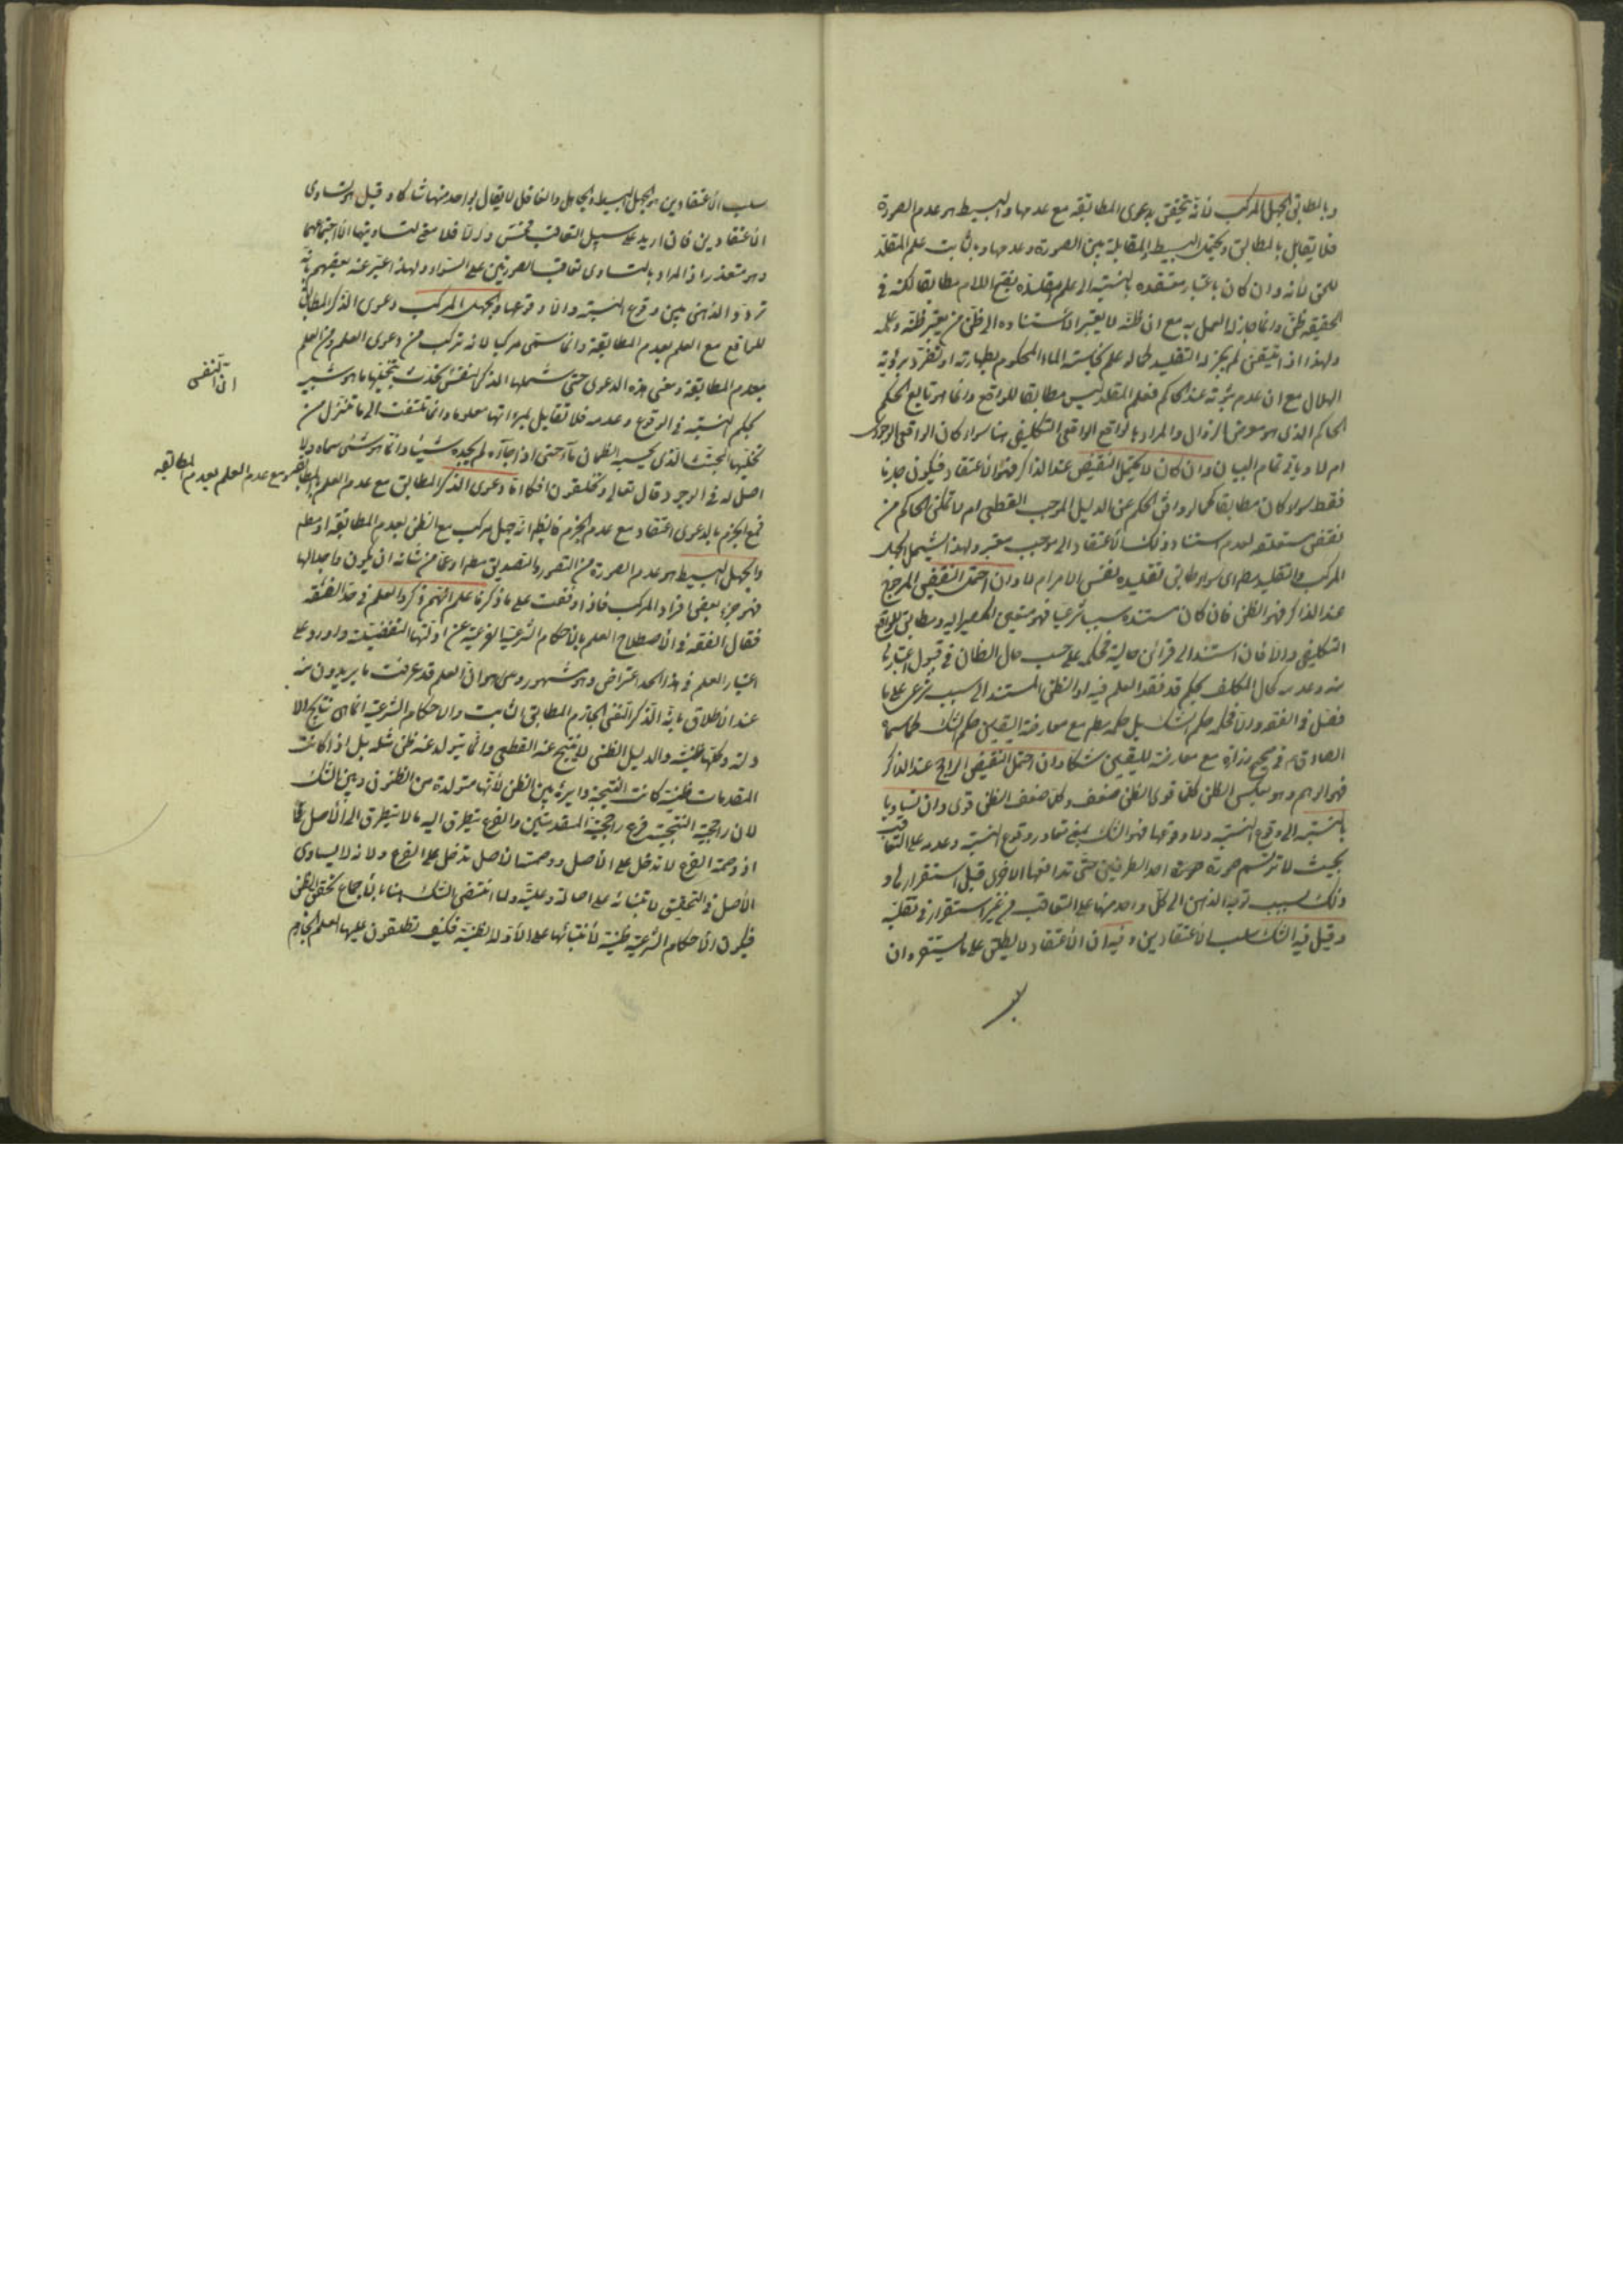 وبالمطابق الجهل المركب لأنه يتحقق بدعوى المطابقة مع عدمها والبسيط هو عدم الصورة
فلا يقابل بالمطابق ويحتمل البسيط المقابلة بين الصورة وعدمها وبالثابت علم المقلد
للحق لأنه وان كان باعتبار معتقده بالنسبة الى علم مقلده بفتح اللام مطابقا لكنه في
الحقيقة ظن وانما جاز له العمل به مع ان ظنه لا يعتبر لاستناده الى ظن من يعتبر ظنه وعلمه
ولهذا اذا تيقن لم يجز له التقليد كما لو علم نجاسة الماء المحكوم بطهارته او تفرد برؤية
الهلال مع ان عدم ثبوته عند الحاكم فعلم المقلد ليس مطابقا للواقع وانما هو تابع لحكم
الحاكم الذي هو معرض الزوال والمراد بالواقع الواقعي التكليفي هنا سواء كان الواقعي الوجودي
ام لا وياتي تمام البيان وان كان لا يحتمل النقيض عند الذاكر فهو الاعتقاد فيكون جزما
فقط سواء كان مطابقا كما لو وافق الحكم عن الدليل الموجب القطعي ام لا تمكن الحاكم من
نقض متعلقه لعدم استناد ذلك الاعتقاد الى موجب معتبر ولهذا يشمل الجهل
المركب والتقليد مطلقا اي سواء طابق تقليده نفس الامر ام لا وان احتمل النقيض المرجوح
عند الذاكر فهو الظن فان كان مستنده سببا شرعيا فهو متعين المصير اليه ومطابق للواقع
التكليفي والا فان استند الى قرائن حالية فحكمه على حسب حال الظان في قبول اعتبارها
منه وعدمه كحال المكلف بحكم قد فقد العلم فيه او الظن المستند الى سبب شرعي على ما
فصل في الفقه والا فحكمه حكم الشك بل حكمه مطلقا مع معارضة اليقين حكم الشك كما سماه
الصادق ع في صحيح زرارة مع معارضته لليقين شكا وان احتمل النقيض الراجح عند الذاكر
فهو الوهم وهو بعكس الظن كلما قوى الظن ضعف وكلما ضعف الظن قوى وان تساويا
بالنسبة الى وقوع النسبة ولا وقوعها فهو الشك بمعنى تعاور وقوع النسبة وعدمه على التعاقب
بحيث لا ترتسم صورة احد الطرفين حتى تدافعها الاخرى قبل استقرارها و
ذلك بسبب توجه الذهن الى كل واحد منهما على التعاقب من غير استقرار في تقلبه
وقيل فيه الشك سلب الاعتقادين وفيه ان الاعتقاد لا يطلق على ما يستقر وان
سلب
سلب الاعتقادين هو الجهل البسيط والجاهل والغافل لا يقال لواحد منهما شاكا وقيل هو تساوي
الاعتقادين فان اريد على سبيل التعاقب فحسن والا فلا معنى لتساويهما الا اجتماعهما
وهو متعذر اذ المراد بالتساوي تعاقب الصورتين على السواء ولهذا اعتبر عنه بعضهم بانه
تردد الذهن بين وقوع النسبة والا وقوعها والجهل المركب دعوى الذكر المطابق
للواقع مع العلم بعدم المطابقة وانما سمى مركبا لانه تركب من دعوى العلم ومن العلم
بعدم المطابقة ومعنى هذه الدعوى حتى شملها الذكر النفسي تحدث بتخيلها ما هو شبيه
ان النفس
بحكم النسبة في الوقوع وعدمه فلا تقابل بمرءاتها معلوما وانما تلتفت الى ما تنزل من
تخيلها المجتث الذي يحسبه الظمآن ماء حتى اذا جاءه لم يجده شيئا وانما هو شيء سماه ولا
اصل له في الوجود قال تعالى وتخلقون افكا اما دعوى الذكر المطابق مع عدم العلم بالمطابقة
ومع عدم العلم بعدم المطابقة
فمع الجزم بالدعوى اعتقاد مع عدم الجزم فالظاهر انه جهل مركب مع الظن بعدم المطابقة او مطلقا
والجهل البسيط هو عدم الصورة من التصور والتصديق مطلقا او عما من شأنه ان يكون واجدا لها
فهو جزء بعض افراد المركب فاذا وقفت على ما ذكرنا علم انهم ذكروا العلم في حد الفقه
فقال الفقه في الاصطلاح العلم بالاحكام الشرعية الفرعية عن ادلتها التفصيلية واورد على
اعتبار العلم في هذا الحد اعتراض وهو مشهور وهو ان العلم قد عرفت ما يريدون منه
عند الاطلاق بانه الذكر النفسي الجازم المطابق الثابت والاحكام الشرعية انما هي نتايج الا
دلة وكلها ظنية والدليل الظني لا ينتج عنه القطعي وانما يتولد عنه ظن مثله بل اذا كانت
المقدمات ظنية كانت النتيجة دايرة بين الظن لأنها متولدة من الظنون وبين الشك
لان راجحية النتيجة فرع راجحية المقدمتين والفرع يتطرق اليه ما لا يتطرق الى الاصل كما
اذ وصمة الفرع لا تدخل على الاصل ووصمة الاصل تدخل على الفرع ولانه لا يساوي
الاصل في التحقيق لابتنائه على اصالته وعليته ولما انتفى الشك هنا بالاجماع تحقق الظن
فيكون الاحكام الشرعية ظنية لابتنائها على الادلة الظنية فكيف تطلقون عليها العلم الجازم